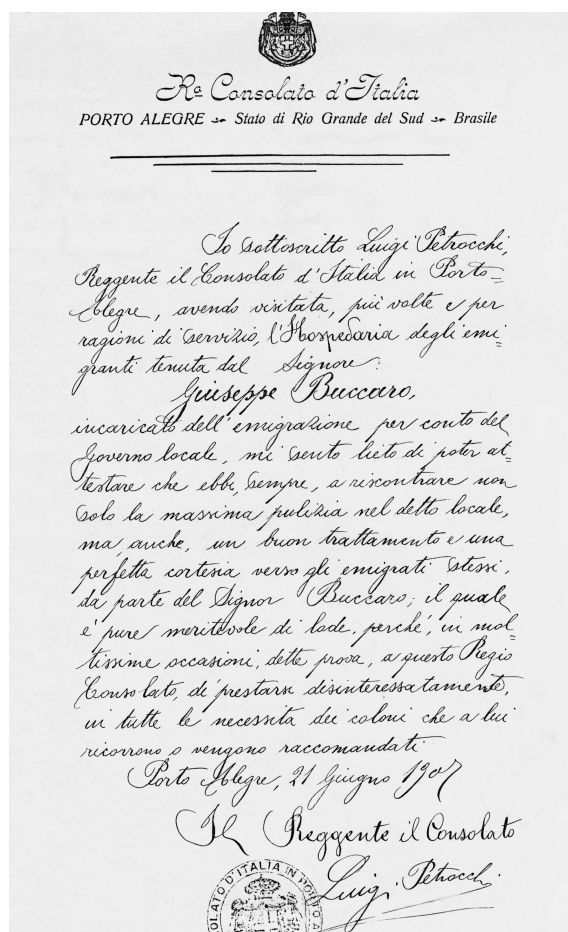 Rº Consolato d'Italia
PORTO ALEGRE Stato di Rio Grande del Sud Brasile
Io sottoscritto Luigi Petrocchi,
Reggente il Consolato d'Italia in Porto=
Alegre, avendo visitata, più volte e per
ragioni di servizio, l'Hospedaria degli emi=
granti tenuta dal Signore:
Giuseppe Buccaro,
incaricato dell'emigrazione per conto del
Governo locale, mi sento lieto di poter at=
testare che ebbi, sempre, a riscontrare non
solo la massima pulizia nel detto locale,
ma, anche, un buon trattamento e una
perfetta cortesia verso gli emigrati stessi,
da parte del Signor Buccaro; il quale
è pure meritevole di lode, perché, in mol=
tissime occasioni, dette prova, a questo Regio
Consolato, di prestarsi disinteressatamente,
in tutte le necessità dei coloni che a lui
ricorrono o vengono raccomandati.
Porto Alegre, 21 Giugno 1907
Il Reggente il Consolato
Luigi Petrocchi
OLATO D'ITALIA IN PORTO A